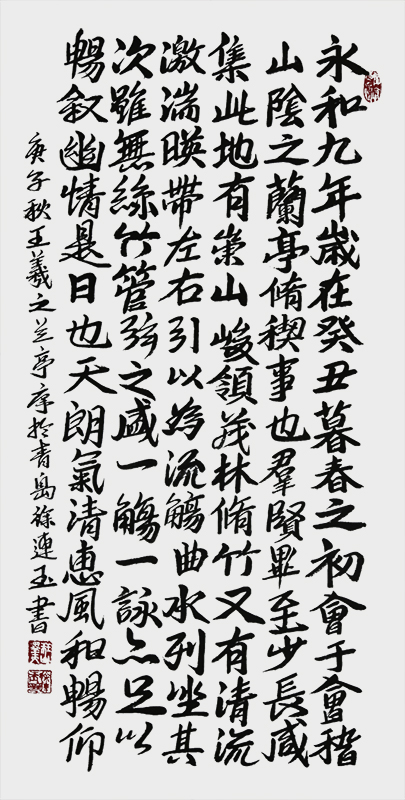 永和九年歲在癸丑暮春之初會于會稽
山陰之蘭亭脩禊事也羣賢畢至少長咸
集此地有崇山峻領茂林脩竹又有清流
激湍暎帶左右引以為流觴曲水列坐其
次雖無絲竹管弦之盛一觴一詠亦足以
暢叙幽情是日也天朗氣清惠風和暢仰
庚子秋王羲之兰亭序於青島徐連玉書